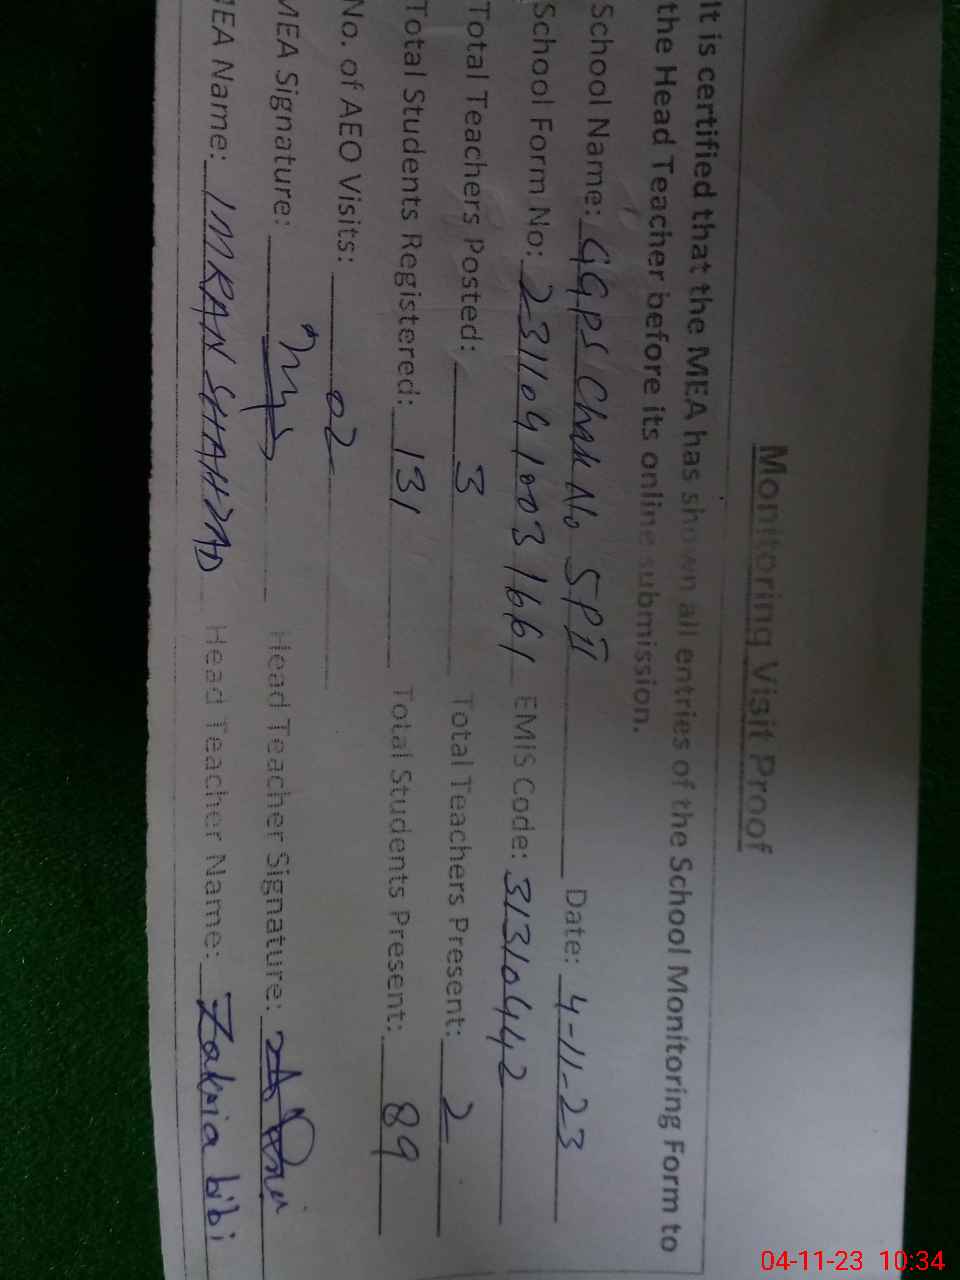 Monitoring Visit Proof
It is certified that the MEA has shown all entries of the School Monitoring Form to
the Head Teacher before its online submission.
School Name: GGPS Chak No 5PII Date: 4-11-23
School Form No: 231104 1003 1661 EMIS Code: 31310442
Total Teachers Posted: 3 Total Teachers Present: 2
Total Students Registered: 131 Total Students Present: 89
No. of AEO Visits: 02
MEA Signature: Head Teacher Signature:
MEA Name: IMRAN SHAHZAD Head Teacher Name: Zakria bibi
04-11-23 10:34